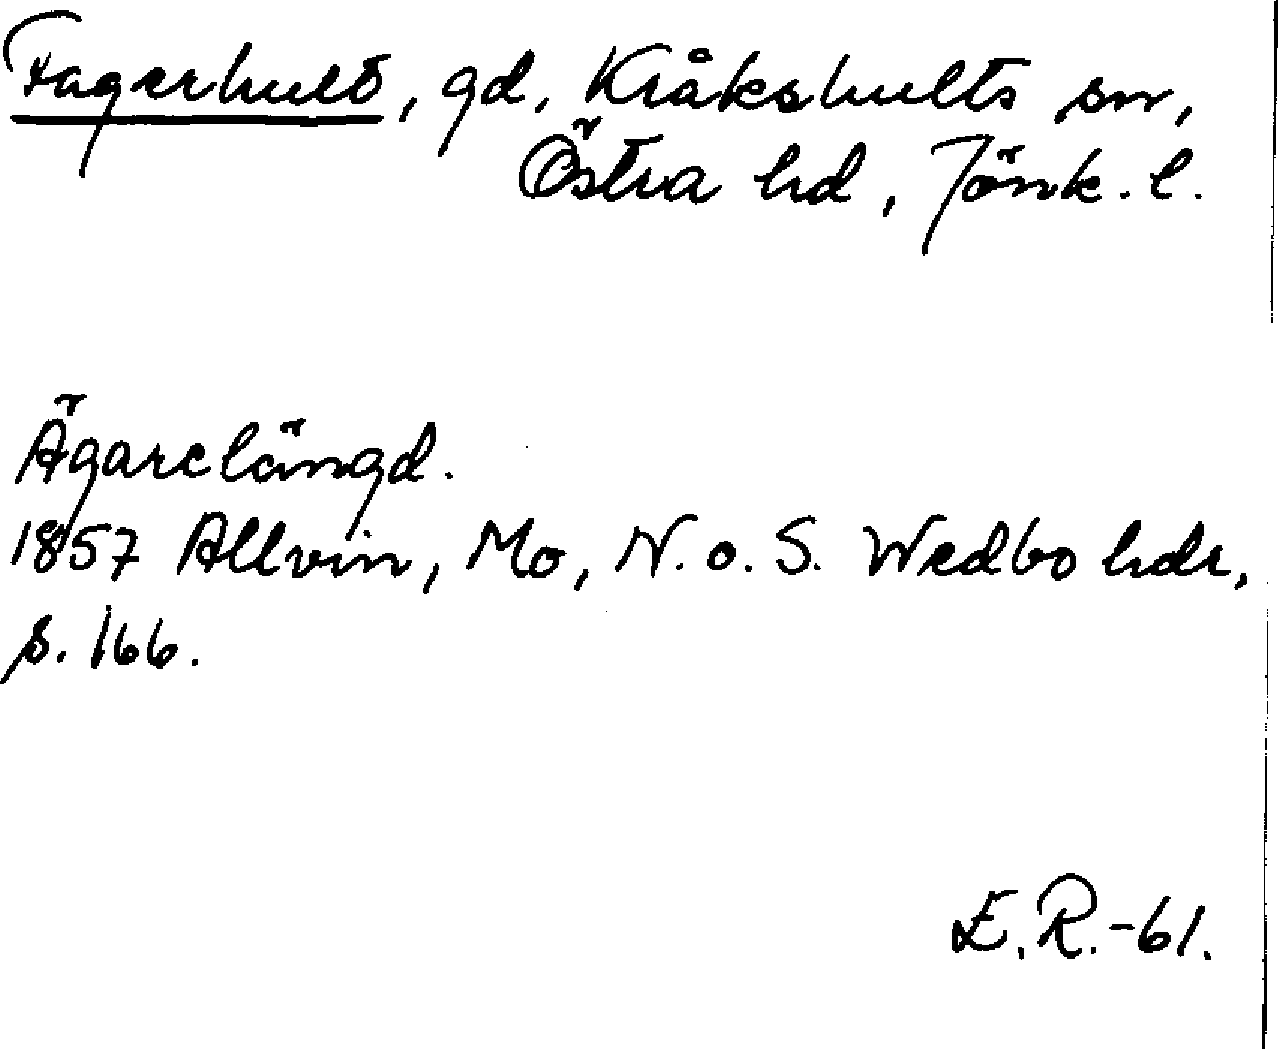 Fagerhult, gd, Kråkshults sn,
Östra hd, Jönk. l.
Ägarelängd.
1857 Allvin, Mo, N. o. S. Wedbo hdr,
s. 166.
E. R. -61.